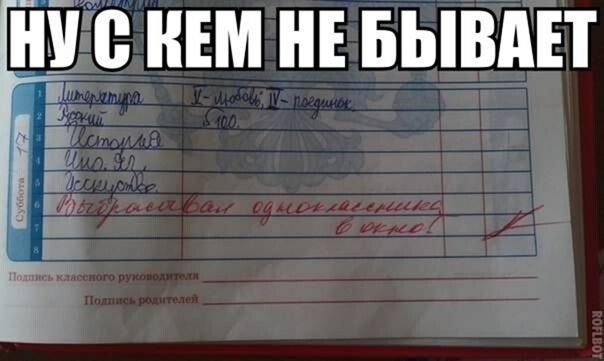 НУ С КЕМ НЕ БЫВАЕТ
1 Литература V - любовь, IV - поединок.
2 Русский §100.
3 История
4 Ино. Яз.
5 Исскуство.
6 Выбрасывал одноклассника
7 в окно!
8
Суббота 17
Подпись классного руководителя
Подпись родителей
ROFLBOT